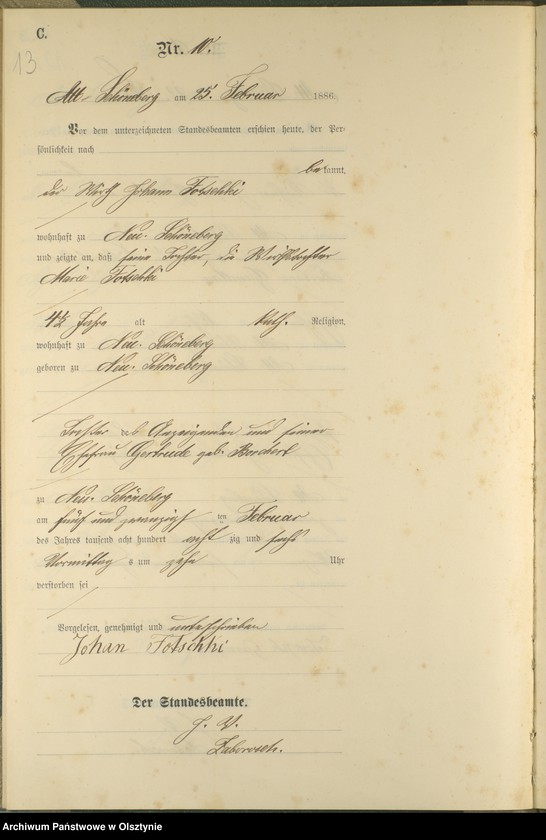 C.
13
Nr. 10.
Alt-Schöneberg am 25. Februar 1886.
Vor dem unterzeichneten Standesbeamten erschien heute, der Per-
sönlichkeit nach
bekannt,
der Wirth Johann Fotschki
wohnhaft zu Neu-Schöneberg
und zeigte an, daß seine Tochter, die Wirthstochter
Marie Fotschki
4½ Jahre alt kath. Religion,
wohnhaft zu Neu-Schöneberg
geboren zu Neu-Schöneberg
Tochter des Anzeigenden und seiner
Ehefrau Gertrude geb. Borchert
zu Neu-Schöneberg
am fünf und zwanzigsten Februar
des Jahres tausend acht hundert acht zig und sechs
Vormittags um zehn Uhr
verstorben sei
Vorgelesen, genehmigt und unterschrieben
Johan Fotschki
Der Standesbeamte.
J. V.
Archiwum Państwowe w Olsztynie